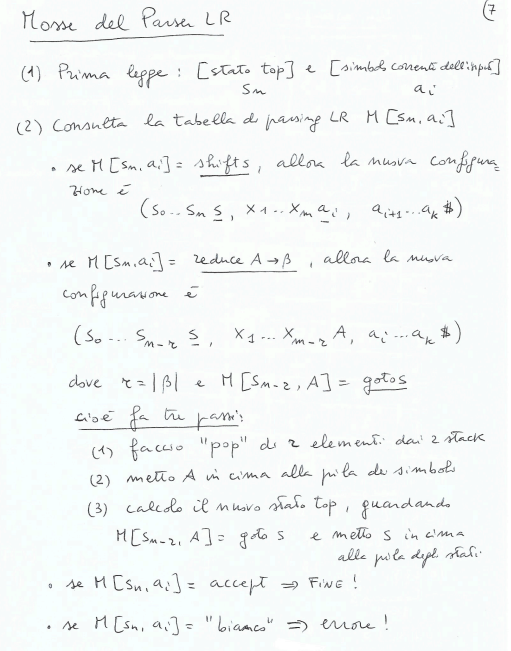 Mosse del Parser LR
(7
(1) Prima legge : [stato top] e [simbolo corrente dell'input]
Sn ai
(2) Consulta la tabella di parsing LR M[Sn, ai]
• se M[Sn, ai] = shift s, allora la nuova configura-
zione è
(S0 .. Sn S, X1 .. Xm ai, ai+1 ... ak $)
• se M[Sn, ai] = reduce A → β, allora la nuova
configurazione è
(S0 ... Sn-r S, X1 ... Xm-r A, ai ... ak $)
dove r = |β| e M[Sn-r, A] = goto s
cioè fa tre passi:
(1) faccio "pop" di r elementi dai 2 stack
(2) metto A in cima alla pila dei simboli
(3) calcolo il nuovo stato top, guardando
M[Sn-r, A] = goto s e metto s in cima
alla pila degli stati.
• se M[Sn, ai] = accept ⇒ FINE !
• se M[Sn, ai] = "bianco" ⇒ errore !